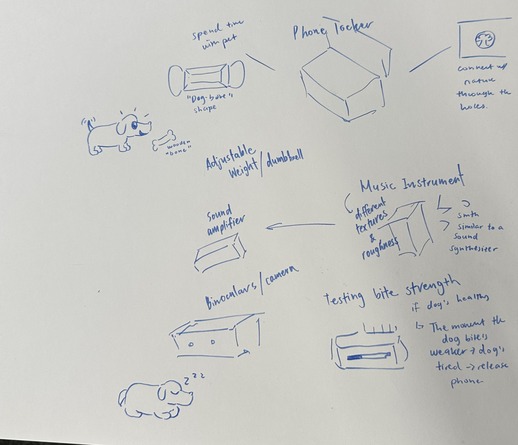 spend time
with pet
Phone Locker
"Dog-bone"
shape
connect w/
nature
through the
holes.
wooden
"bone"
Adjustable
Weight / dumbbell
Music Instrument
different
textures
&
roughness
smth
similar to a
sound
synthesizer
Sound
amplifier
Binoculars / camera
Testing bite strength
if dog's healthy
↳ The moment the
dog bite's
weaker → dog's
tired → release
phone
z z z